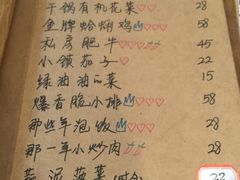 干锅有机花菜♡♡ 28
金牌蛤蜊鸡♡♡♡ 58
私房肥牛 45
小锅茄子♡ 22
绿油油的菜 15
爆香脆小排♡♡♡ 58
那些年泡饭♡♡♡ 28
那一年小炒肉 28
蒸 菜 22